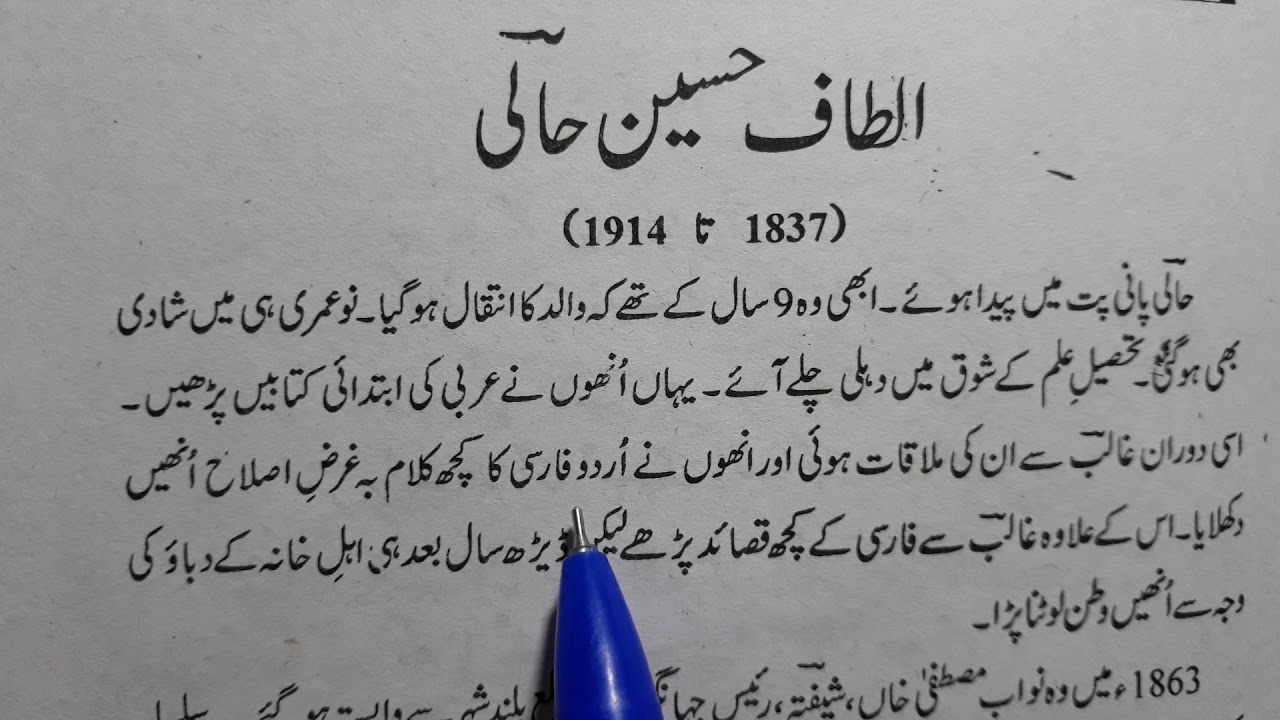 الطاف حسین حالیؔ
(1837 تا 1914)
حالیؔ پانی پت میں پیدا ہوئے۔ ابھی وہ 9 سال کے تھے کہ والد کا انتقال ہو گیا۔ نو عمری ہی میں شادی
بھی ہو گئی۔ تحصیلِ علم کے شوق میں دہلی چلے آئے۔ یہاں اُنھوں نے عربی کی ابتدائی کتابیں پڑھیں۔
اسی دوران غالبؔ سے ان کی ملاقات ہوئی اور انھوں نے اُردو فارسی کا کچھ کلام بہ غرضِ اصلاح اُنھیں
دکھلایا۔ اس کے علاوہ غالبؔ سے فارسی کے کچھ قصائد پڑھے لیکن ڈیڑھ سال بعد ہی اہلِ خانہ کے دباؤ کی
وجہ سے اُنھیں وطن لوٹنا پڑا۔
1863ء میں وہ نواب مصطفیٰ خاں، شیفتہؔ، رئیس بلند شہر سے وابستہ ہو گئے